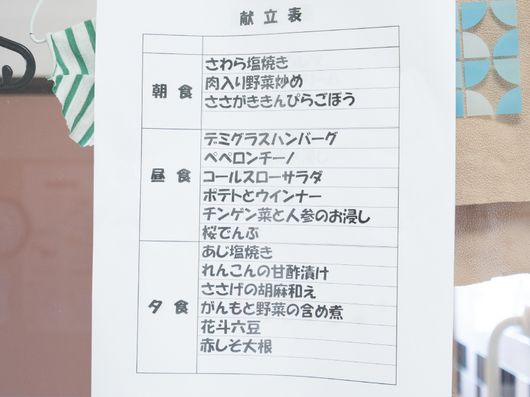 献立表
朝食
さわら塩焼き
肉入り野菜炒め
ささがききんぴらごぼう
昼食
デミグラスハンバーグ
ペペロンチーノ
コールスローサラダ
ポテトとウインナー
チンゲン菜と人参のお浸し
桜でんぶ
夕食
あじ塩焼き
れんこんの甘酢漬け
ささげの胡麻和え
がんもと野菜の含め煮
花斗六豆
赤しそ大根